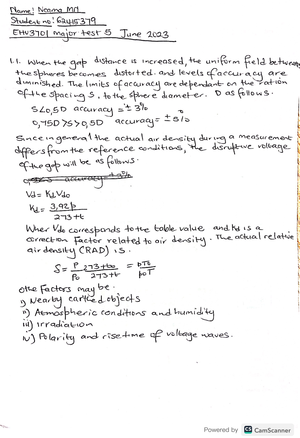 Name: Ncama MM
Student no: 62415379
EHV3701 major test 5 June 2023
1.1. When the gap distance is increased, the uniform field between
the spheres becomes distorted and levels of accuracy are
diminished. The limits of accuracy are dependant on the ration
of the spacing S, to the sphere diameter. D as follows.
S≤0,5D accuracy = ± 3%
0,75D>S>0,5D accuracy = ± 5%
Since in general the actual air density during a measurement
differs from the reference conditions, the disruptive voltage
of the gap will be as follows.
Vd = KdVdo
Kd = 3,92p / 273+t
Wher Vdo corresponds to the table value and Kd is a
correction factor related to air density. The actual relative
air density (RAD) is.
S = P/Po 273+to/273+t = pTo/poT
othe factors may be.
i) Nearby earthed objects
ii) Atmospheric conditions and humidity
iii) irradiation
iv) Polarity and rise time of voltage waves.
Powered by CS CamScanner